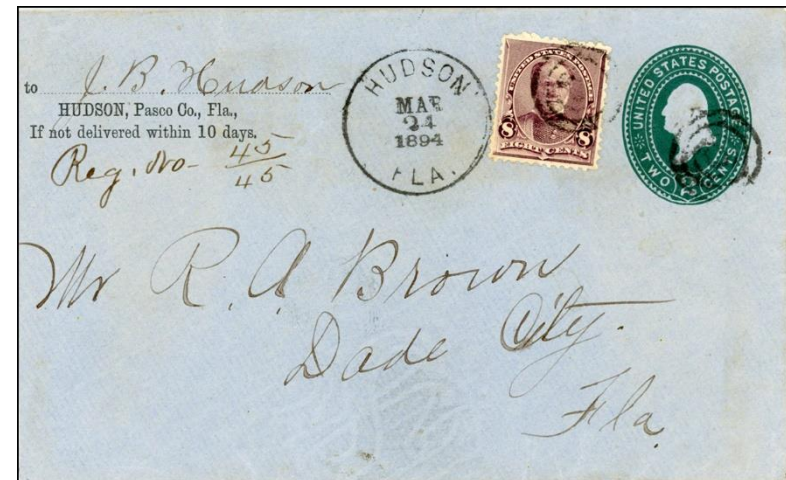 to J. B. Hudson
HUDSON, Pasco Co., Fla.,
If not delivered within 10 days.
Reg. No - 45
45
HUDSON
MAR
24
1894
FLA.
UNITED STATES POSTAGE
8 8
EIGHT CENTS
UNITED STATES POSTAGE
TWO CENTS
2
Mr R. A Brown
Dade City.
Fla